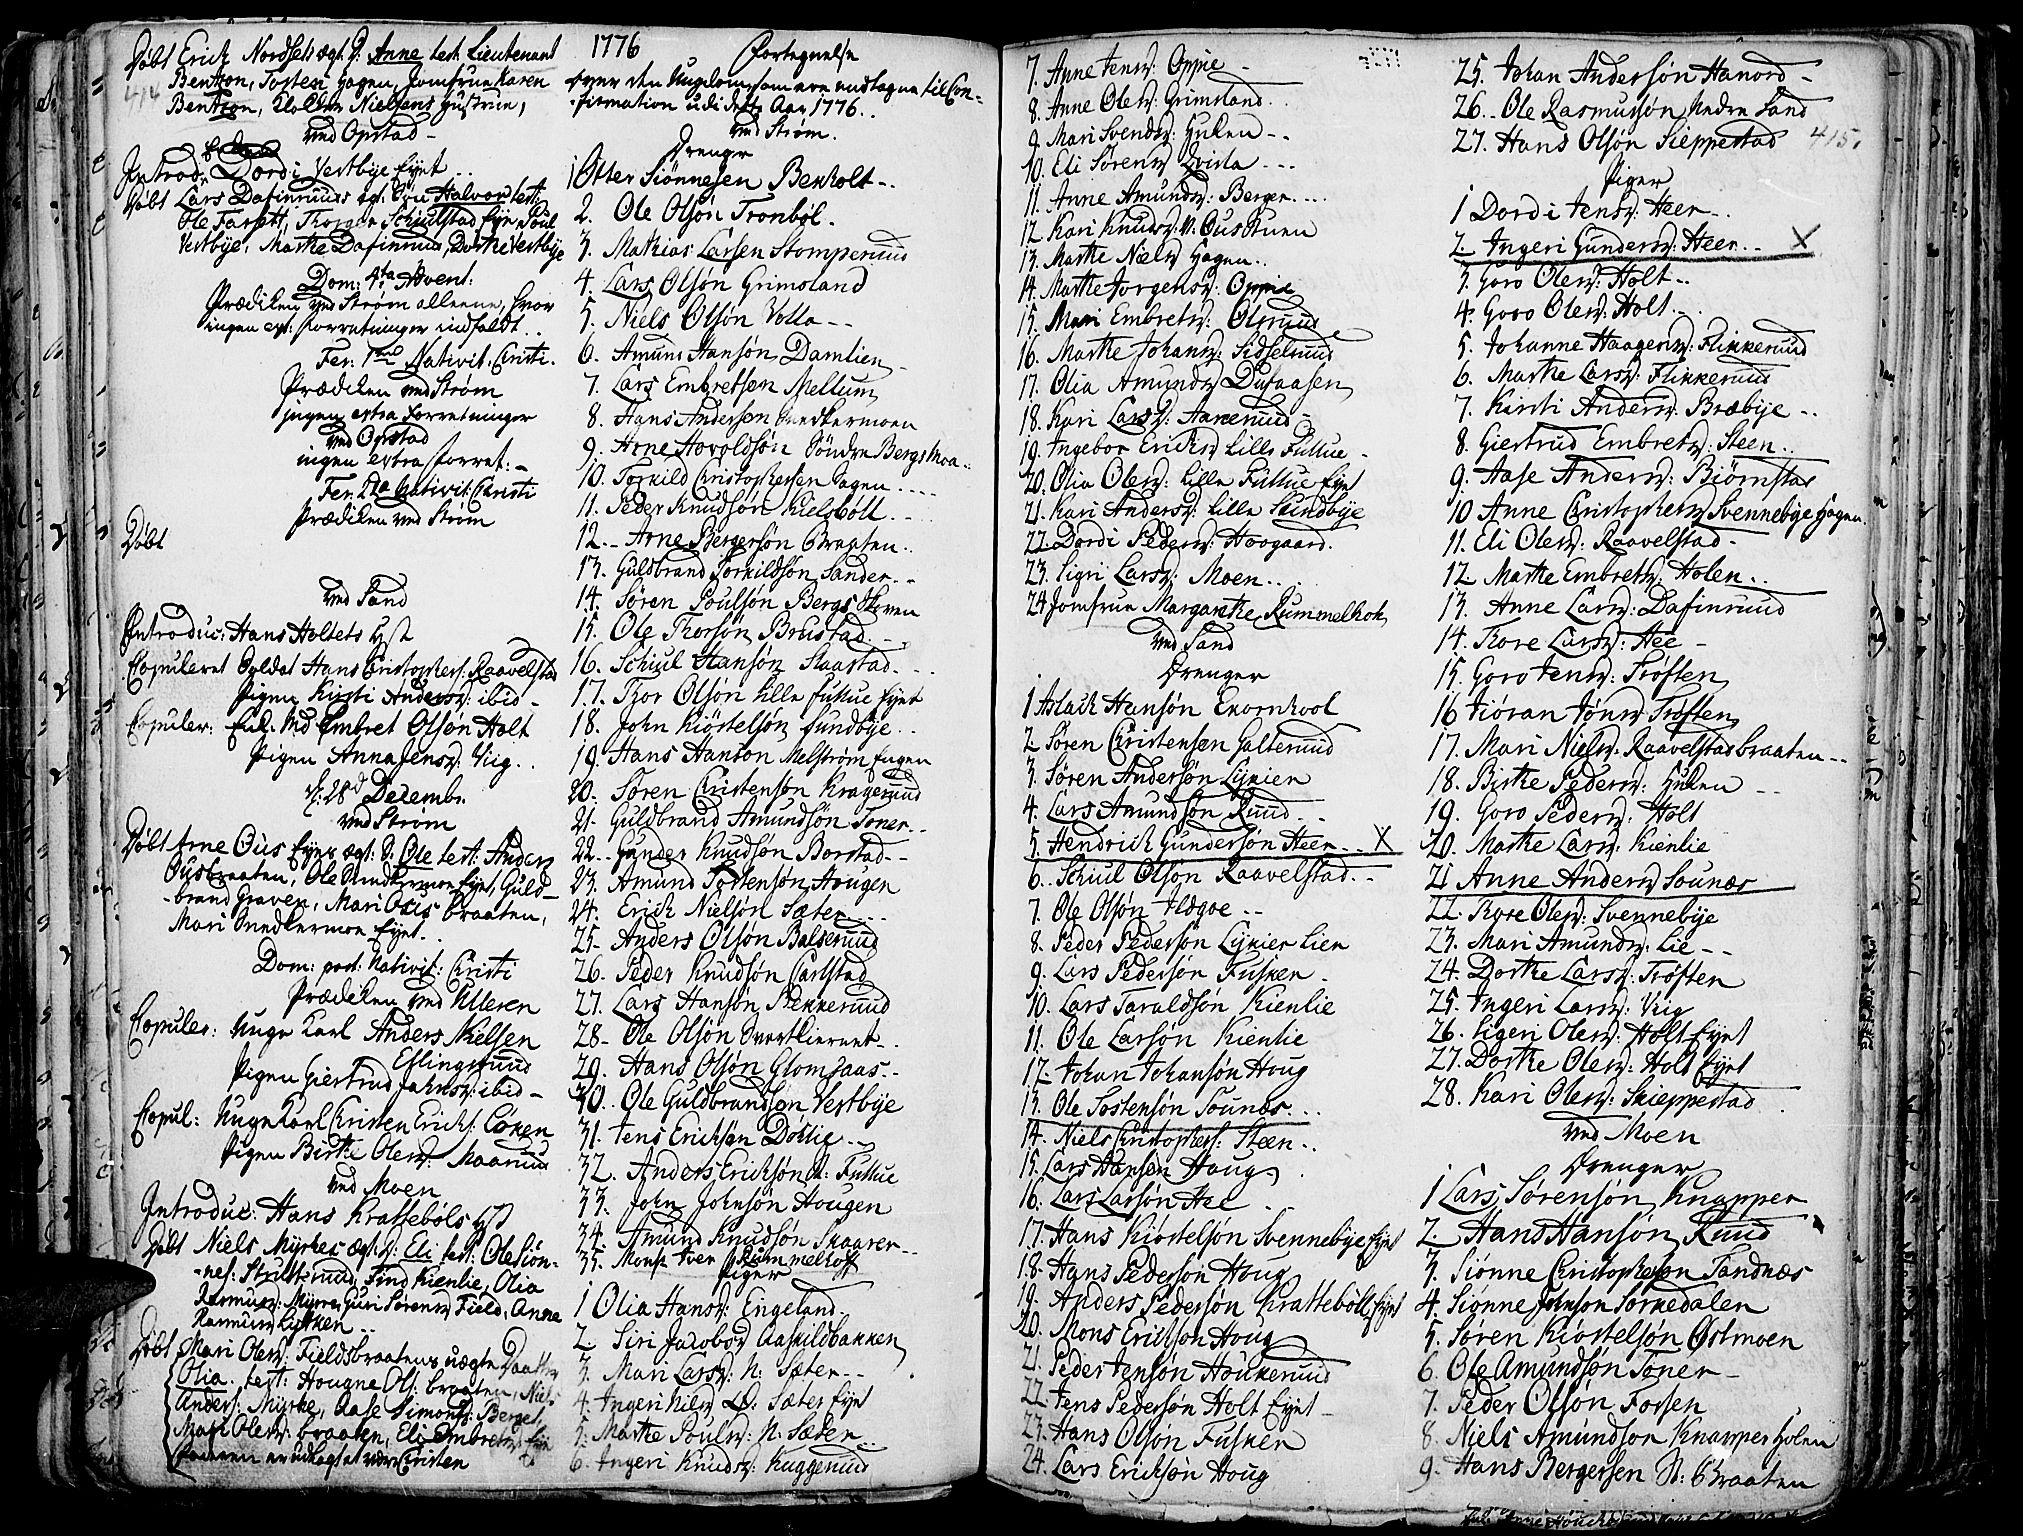 414
Døbt Erich Nordsets ægt. D. Anne test. Lieutenant
Bentzon, Tosten Hagen, Jomfrue Karen
Bentzon, Nielsens Hustrue,
ved Opstad
Introd. Dordi Vestbye Eyet
Døbt Lars Dafinruds ægt. Sön Halvor test.
Ole Schiulstad Eye, Poul
Vestbye, Marthe Dafinrud, Dorthe Vestbye
Dom: 4ta Advent:
Prædiken ved Strøm alleene, hvor
ingen ext: Forretninger indfaldt.
Fer: 1ma Nativit. Christi.
Prædiken ved Strøm
ingen extra Forretninger
ved Opstad
ingen extra Forret:
Fer: 2da Nativit: Christi
Prædiken ved Strøm
Døbt
ved Sand
Introduc: Hans Holtets Hst
Copuleret Soldat Hans Christophers: Raavelstad
Pigen Kirsti Andersd: ibid
Copuler: Enk. Md Embret Olsøn Holt
Pigen Anna Jensd: Viig
d: 28d Decembr.
ved Strøm
Døbt Arne Ous Eyes ægt. S. Ole test: Anders
Ousbraaten, Ole Snedkermoe Eyet, Guld-
brand Graven, Mari Ousbraaten,
Mari Snedkermoe Eyet.
Dom: post: Nativit: Christi
Prædiken ved Ulleren
Copuler: Unge Karl Anders Nielsen
Eslingsrud
Pigen Giertrud ibid
Copul: Unge Karl Christen Erichs:
Pigen Birthe Olesd: Maarud
ved Moen
Introduc: Hans Krattebøls Hst
Døbt Niels Myrhes ægt. D: Eli test: Ole Siøn-
nes: Find Kienlie, Olia
Rasmusd: Myrre, Guri Sørensd Field, Anne
Rasmusd
Døbt Mari Olesd: Fieldsbraatens uægte Daatter
Olia. test: Hougne Ols: braaten, Niels
Anders: Myrhe, Aase Simonsd: Berget,
Mari Olesd: braaten, Eli Embretsd
Faderen er udlagt at være Christen
1776
Fortegnelse
over den Ungdom som ere andtagne til Con-
firmation udi dette Aar 1776.
ved Strøm.
Drenge
1 Otter Siønnesen Berholt
2. Ole Olsøn Tronbøl.
3. Mathias Larsen Stomperud
4. Lars Olsøn Grimsland
5. Niels Olsøn Volla
6. Amund Hansøn Damlien
7. Lars Embretsen Meltum
8. Hans Andersen Snedkermoen
9. Arne Haroldsøn Söndre Bergs Moa
10. Torkild Christophersen Hagen
11. Peder Knudsøn Kielsbøll
12. Arne Bergersøn Braaten
13. Guldbrand Torkildsøn Sander
14. Søren Poulsøn Bergs Hoven
15. Ole Thorsøn Brustad
16. Schiul Hansøn Skaastad
17. Thor Olsøn Lille Fullue Eyet
18. John Kiöstelsøn Sundbye
19. Hans Hanson Melstrøm Engen
20. Søren Christensøn Kragerud
21. Guldbrand Amundsøn Toner
22. Gunder Knudsøn Borstad
23. Amund Tostensøn Hougen
24. Erich Nielsøn Sæter
25. Anders Olsøn Balserud
26. Peder Knudsøn Carlstad
27. Lars Hansøn Stekkerud
28. Ole Olsøn
29. Hans Olsøn Glomsaas
30. Ole Guldbrandsøn Vestbye
31. Jens Erichsøn Dohlie
32. Anders Erichsøn N: Fullue
33. John Johnsøn Hougen
34. Amund Knudsøn Skaarer
35. Mons: Iver Rummelhoff
Piger
1 Olia Hansd: Engeland
2. Siri Jacobsd Aaskildbakken
3. Mari Larsd: N: Sæter
4. Ingeri Nilsd Sæter Eyet
5. Marthe Poulsd: N: Sæter
6. Ingeri Knudsd: Kuggerud
7. Anne Jensd: Oppie
8. Anne Olesd: Grimsland
9. Mari Svendsd: Huken
10. Eli Sørensd
11. Anne Amundsd: Berger
12. Kari Knudsd: V: Ousstuen
13. Marthe Nielsd Hagen
14. Marthe Jorgensd: Oppie
15. Mari Embretsd: Olsrud
16. Marthe Johansd: Sidselrud
17. Olia Amundsd Dufaasen
18. Kari Larsd: Hanerud
19. Ingebor Erichsd: Lille Fullue
20. Olia Olesd: Lille Fullue Eyet
21. Kari Andersd: Lille Sundbye
22. Dordi Pedersd: Hoogaard.
23. Sigri Larsd: Moen
24 Jomfrue Margarethe Rummelhok
ved Sand
Drenger
1 Aslach Hansøn Evornhool
2 Søren Christensen Galterud
3. Søren Andersøn Lynier
4. Lars Amundsøn Ruud
5. Hendrich Gundersøn Heer X
6. Schiul Olsøn Raavelstad
7. Ole Olsøn Hægoe
8. Peder Pedersøn Lynier Lien
9. Lars Pedersøn Fusker
10. Lars Taraldsøn Kienlie
11. Ole Larsøn Kienlie
12. Johan Johansøn Houg
13. Ole Tostensøn Sounæs
14. Niels Christophers: Steen
15. Lars Hansøn Houg
16. Lars Larsøn Hee
17. Hans Kiöstelsøn Svennebye Eyet
18. Hans Pedersøn Houg
19. Anders Pedersøn Krattebøll Eyet
20. Mons Erichsøn Houg
21. Peder Jensøn Houkerud
22. Jens Pedersøn Holt Eyet
23. Hans Olsøn Fusker
24. Lars Erichsøn Houg
25. Johan Andersøn Hanord
26. Ole Rasmussøn Nedre Sand
27. Hans Olsøn Sieppestad
415.
Piger
1 Dordi Jensd: Heer
2. Ingeri Gundersd: Heer X
3. Goro Olesd: Holt
4. Goro Olesd: Holt
5. Johanne Haagensd: Flikkerud
6. Marthe Larsd: Flikkerud
7. Kirsti Andersd: Bræbye
8. Giertrud Embretsd: Steen
9. Aase Andersd: Biørnstad
10 Anne Christophersd Svennebye Hagen
11. Eli Olesd: Raavelstad
12. Marthe Embretsd: Holen
13. Anne Larsd: Dafinrud
14. Thore Larsd: Hee
15. Goro Jensd: Trøften
16 Jöran Jønsd Trøften
17. Mari Nielsd: Raavelstadbraaten
18. Birthe Pedersd: Huken
19. Goro Pedersd: Holt
20. Marthe Larsd: Kienlie
21 Anne Andersd Sounæs
22. Thore Olesd: Svennebye
23. Mari Amundsd: Lie
24. Dorthe Larsd: Trøften
25. Ingeri Larsd: Viig
26. Sigeri Olesd: Holt Eyet
27. Dorthe Olesd: Holt Eyet
28. Kari Olesd: Skieppestad
ved Moen
Drenger
1 Lars Sørensøn Knapper
2. Hans Hansøn Ruud
3. Siønne Christophersøn Sandnæs
4. Siønne Johnsøn Sorkedalen
5. Søren Kiöstelsøn Østmoen
6. Ole Amundsøn Toner
7. Peder Olsøn Forsen
8. Niels Amundsøn Knapper Holen
9. Hans Bergersen N: Braaten